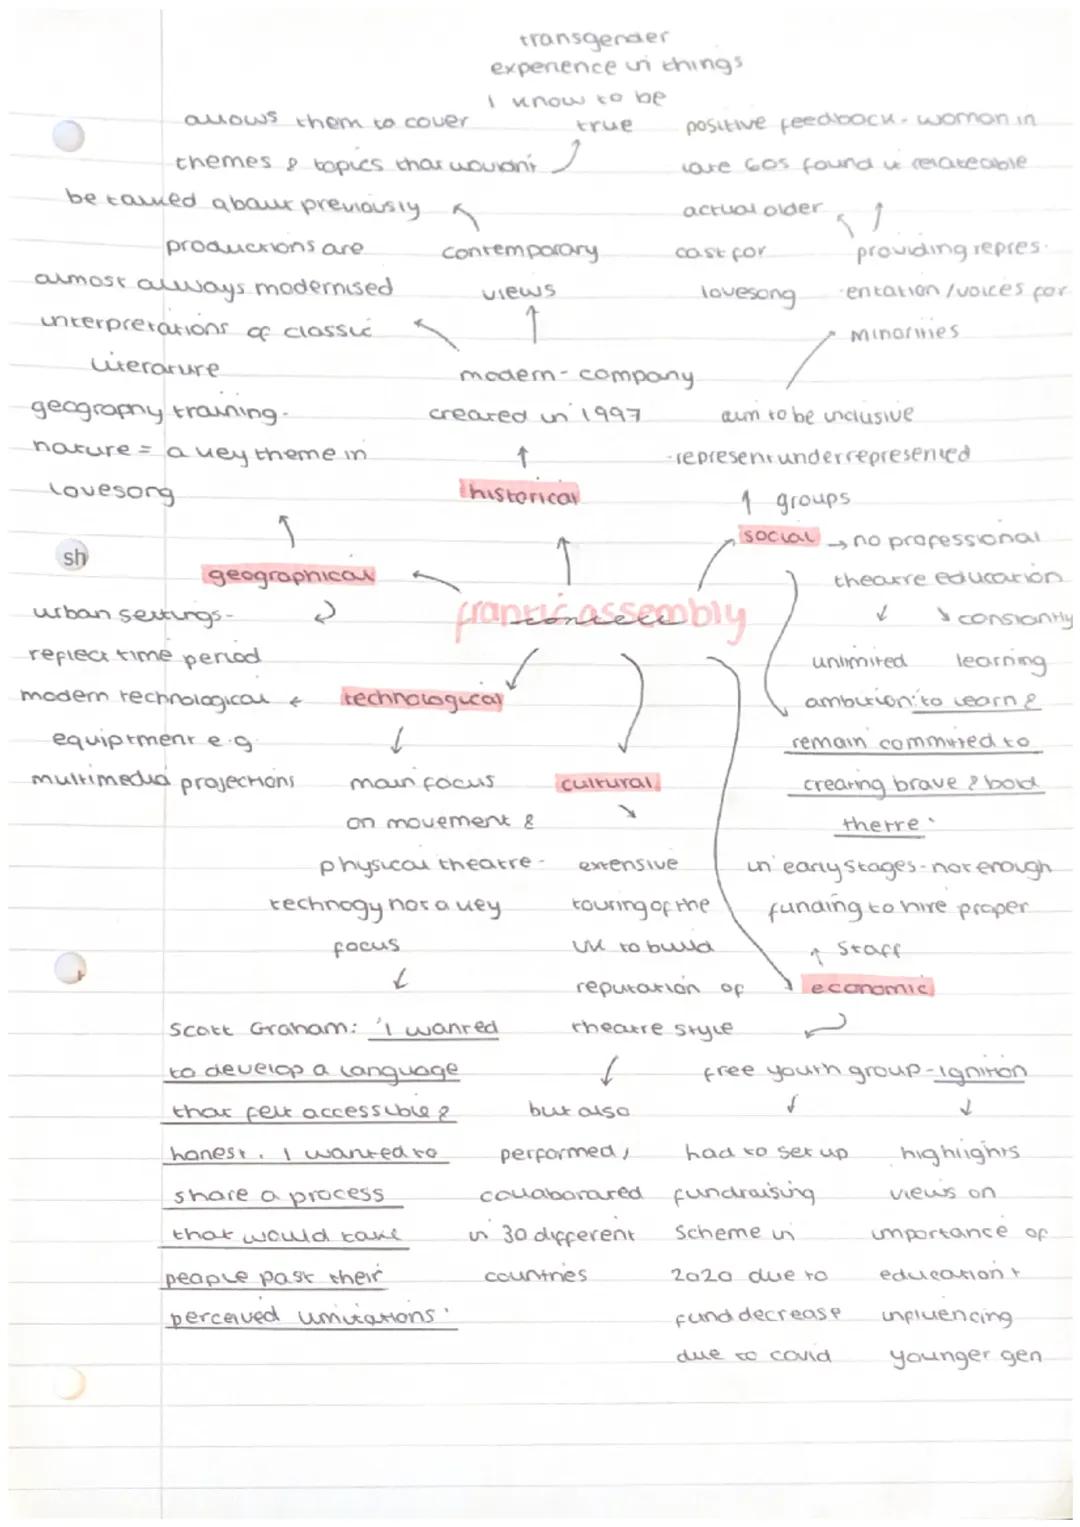 transgender
experience in things
I know to be
true
allows them to cover
themes & topics that wouldn't
be talked about previously
productions are
almost always modernised
interpretations of classic
literature
contemporary
views
modern - company
created in 1997
historical
positive feedback - woman in
late 60s found it relateable
actual older
cast for
lovesong
providing repres-
entation/voices for
minorities
aim to be inclusive
- represent underrepresented
groups
social
no professional
theatre education
constantly
learning
unlimited
ambition: to learn &
remain committed to
creating brave & bold
thetre.
geography training -
nature = a key theme in
lovesong
sh
geographical
urban settings -
reflect time period
frantic assembly
context
technological
modern technological
equiptment e.g.
multimedia projections
main focus
on movement &
physical theatre -
technogy not a key
focus
Scott Graham: 'I wanted
to develop a language
that felt accessible &
honest. I wanted to
share a process
that would take
people past their
perceived limitations.'
cultural
extensive
touring of the
UK to build
reputation of
theatre style
but also
performed,
collaborated
in 30 different
countries
in early stages - not enough
funding to hire proper
staff
economic
free youth group - Ignition
had to set up
fundraising
scheme in
2020 due to
fund decrease
due to covid
highlights
views on
importance of
education +
influencing
younger gen